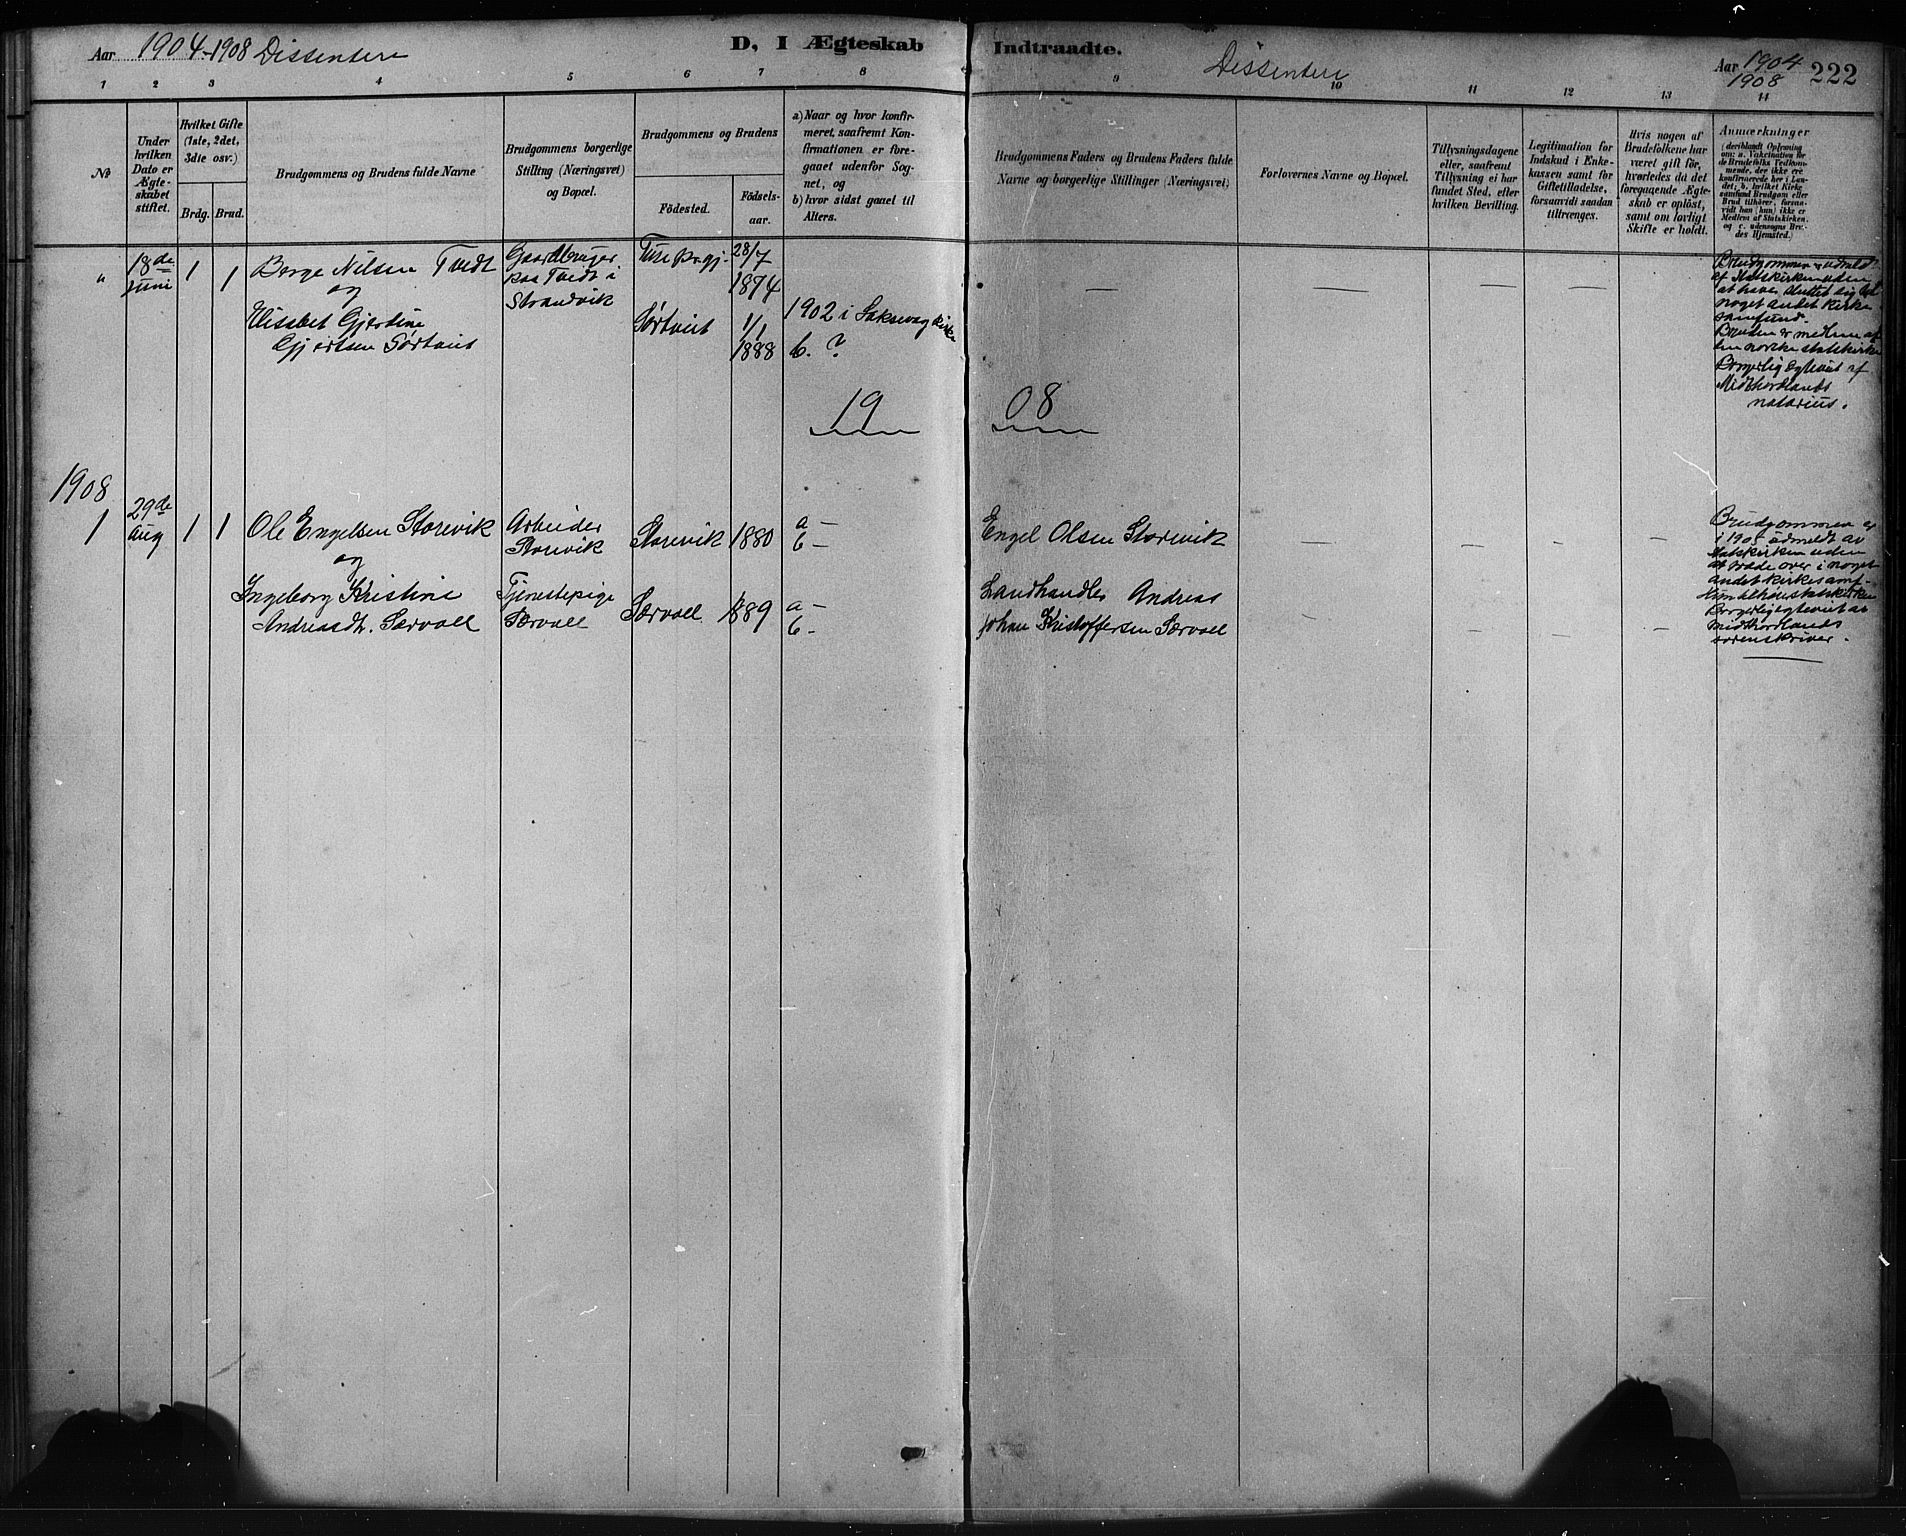 Aar 1904-1908 Dissentere
D, I Ægteskab
Indtraadte.
Dissentere
Aar 1904
1908
222
1 2 3 4 5 6 7 8
9 10 11 12 13 14
No
Under hvilken Dato er Ægteskabet stiftet.
Hvilket Gifte (1ste, 2det, 3die osv.)
Brdg. Brud.
Brudgommens og Brudens fulde Navne
Brudgommens borgerlige Stilling (Næringsvei) og Bopæl.
Brudgommens og Brudens
Födested.
Födsels-aar.
a) Naar og hvor konfirmeret, saafremt Konfirmationen er foregaaet udenfor Sognet, og
b) hvor sidst gaaet til Alters.
Brudgommens Faders og Brudens Faders fulde Navne og borgerlige Stillinger (Næringsvei)
Forlovernes Navne og Bopæl.
Tillysningsdagene eller, saafremt Tillysning ei har fundet Sted, efter hvilken Bevilling.
Legitimation for Indskud i Enkekassen samt for Giftetilladelse, forsaavidt saadan tiltrænges.
Hvis nogen af Brudefolkene har været gift för, hvorledes da det foregaaende Ægteskab er oplöst, samt om lovligt Skifte er holdt.
Anmærkninger
(deriblandt Oplysning om: a. Vakcination for de Brudefolks Vedkommende, der ikke ere konfirmerede her i Landet; b. hvilket Kirkesamfund Brudgom eller Brud tilhörer, forsaavidt han (hun) ikke er Medlem af Statskirken, og c. udensogns Brudes Hjemsted.)
" 18de Juni 1 1
Børge Nilsen Tvedt
og
Elisabet Gjerdine
Gjertsen Sørtveit
Gaardbruger
paa Tvedt i
Strandvik
Fuse Prgj.
Sørtveit
28/7
1874
1/1
1888
1902 i Laksevag kirke
b. ?
—
Brudgommen udmeldt
af Statskirken uden
at have sluttet sig til
noget andet kirke
samfund.
Bruden er medlem af
den norske statskirke
Borgerlig egteviet af
Midthordlands
notarius.
19 08
1908
1 29de Aug 1 1
Ole Engelsen Storevik
og
Ingeborg Kristine
Andreasdt. Særvoll
Arbeider
Storevik
Tjenestepige
Særvoll
Storevik 1880
Særvoll 1889
a —
b —
a —
b —
Engel Olsen Storevik
Landhandler Andreas
Johan Kristoffersen Særvoll
Brudgommen er
i 1905 udmeldt av
statskirken uden
at træde over i noget
andet kirkesamf-
Borgerlig egteviet av
Midthordlands
sorenskriver.